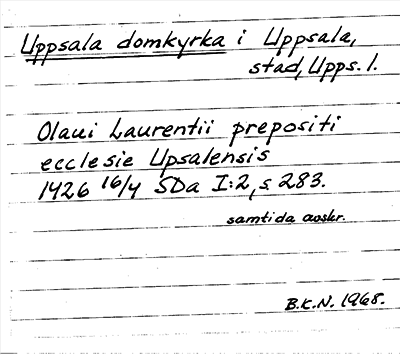 Uppsala domkyrka i Uppsala,
stad, Upps. l.
Olaui Laurentii prepositi
ecclesie Upsalensis
1426 16/4 SDa I:2, s 283.
samtida avskr.
B.K.N. 1968.